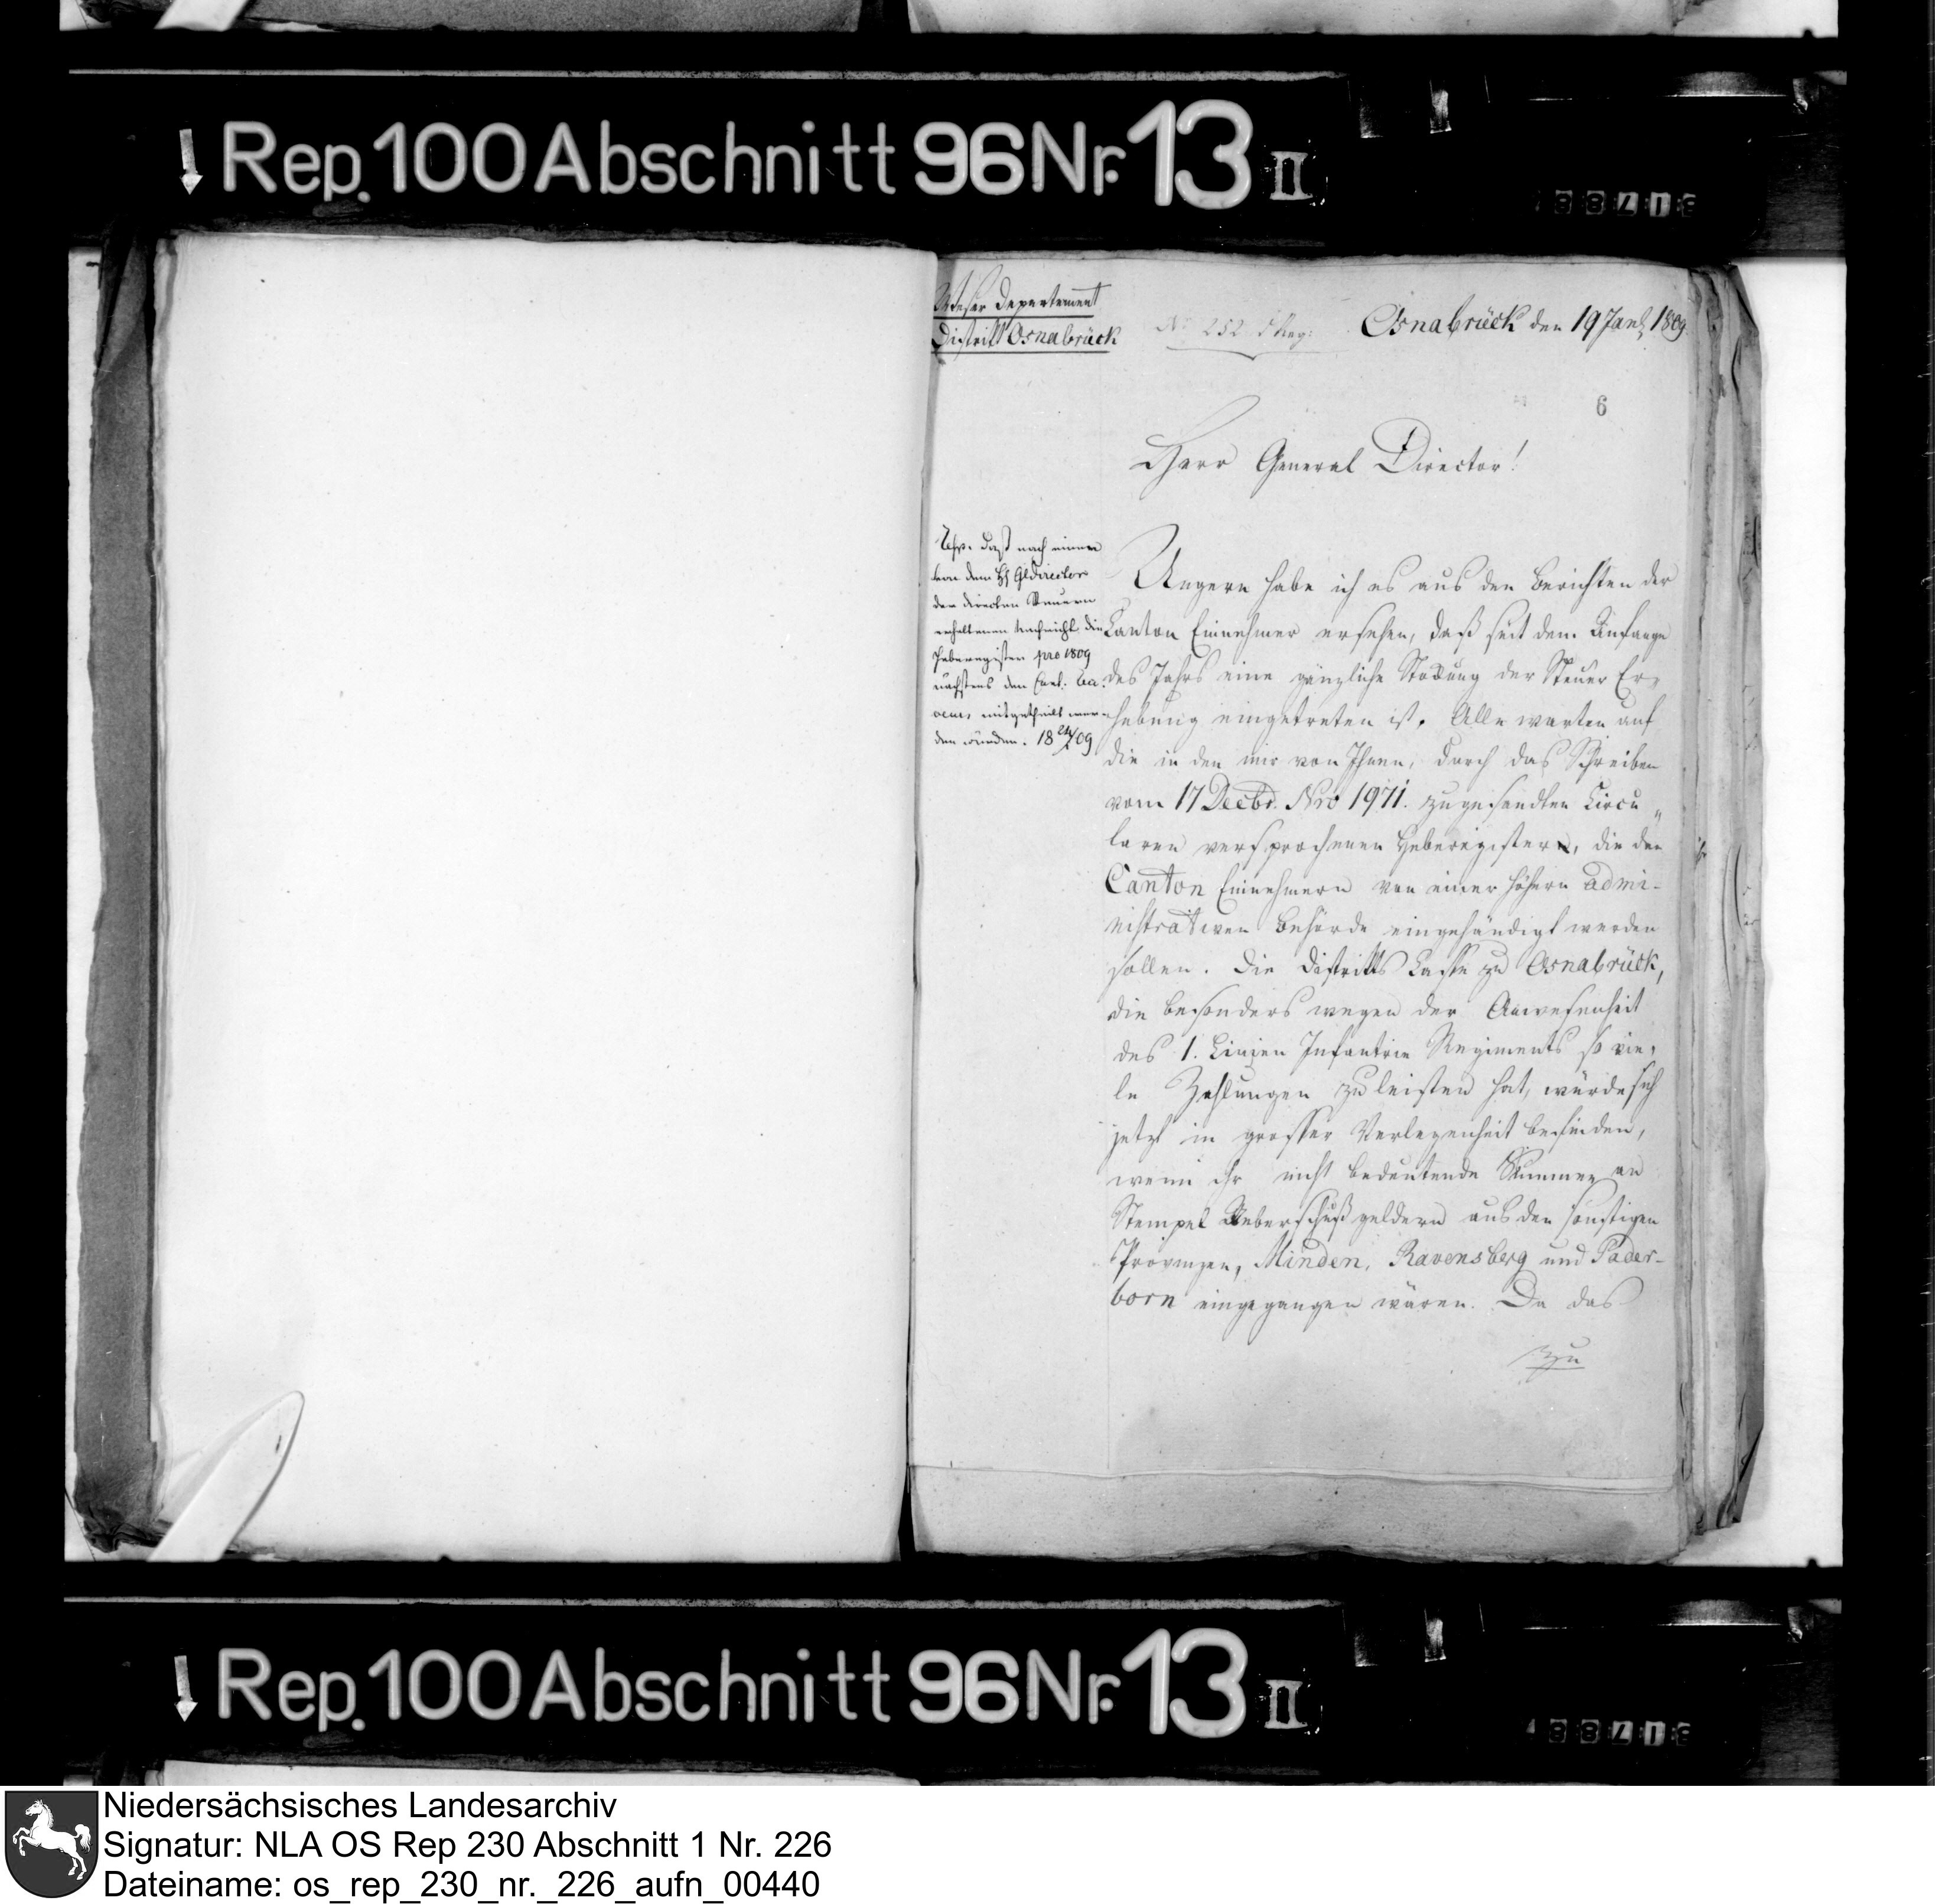 Rep. 100 Abschnitt 96 Nr. 13 II
Weser Departement
District Osnabrück
No 252 Reg:
Osnabrück den 19 Jan 1809.
6
Herr General Director!
Resp. daß nach einer
von dem H Gldirector
der directen Steuern
erhaltenen Nachricht die
Heberegister pro 1809
nächstens den Cant:
mitgetheilt wer-
den würden. 18 24/1 09
Ungern habe ich es aus den Berichten der
Canton Einnehmer ersehen, daß seit dem Anfange
des Jahrs eine gänzliche Stockung der Steuer Er-
hebung eingetreten ist. Alle warten auf
die in den mir von Ihnen, durch das Schreiben
vom 17 Decbr. Nro 1971. zugesandten Circu„
laren versprochenen Heberegistern, die den
Canton Einnehmern von einer höhern admi-
nistrativen Behörde eingehändigt werden
sollen. Die Districts Casse zu Osnabrück,
die besonders wegen der Anwesenheit
des 1. Linien Infantrie Regiments so vie-
le Zahlungen zu leisten hat, würde sich
jetzt in grosser Verlegenheit befinden,
wenn ihr nicht bedeutende Summen an
Stempel Ueberschußgeldern aus den sonstigen
Provinzen, Minden, Ravensberg und Pader-
born eingegangen wären. Da das
zu
Rep. 100 Abschnitt 96 Nr. 13 II
Niedersächsisches Landesarchiv
Signatur: NLA OS Rep 230 Abschnitt 1 Nr. 226
Dateiname: os_rep_230_nr._226_aufn_00440